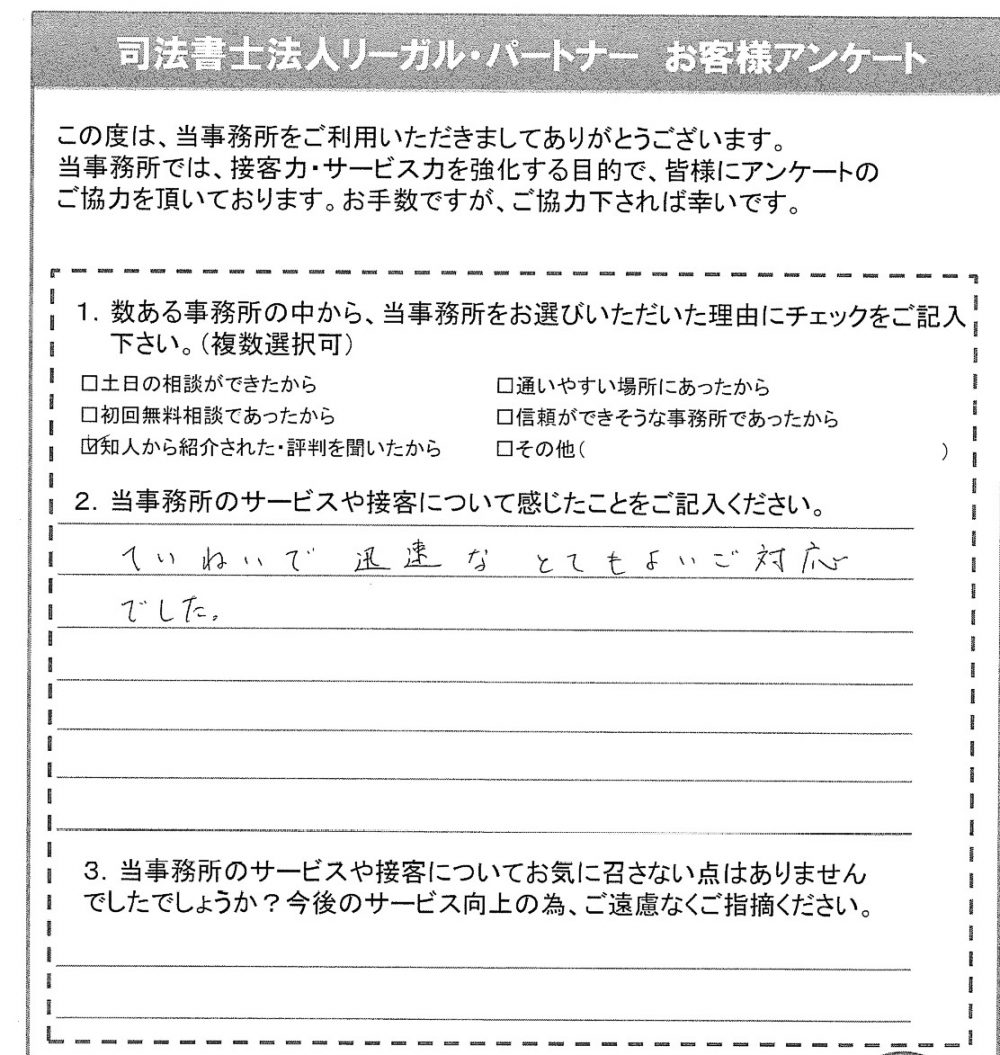 司法書士法人リーガル・パートナー お客様アンケート
この度は、当事務所をご利用いただきましてありがとうございます。
当事務所では、接客力・サービス力を強化する目的で、皆様にアンケートの
ご協力を頂いております。お手数ですが、ご協力下されば幸いです。
1. 数ある事務所の中から、当事務所をお選びいただいた理由にチェックをご記入
下さい。(複数選択可)
□土日の相談ができたから □通いやすい場所にあったから
□初回無料相談であったから □信頼ができそうな事務所であったから
☑知人から紹介された・評判を聞いたから □その他( )
2. 当事務所のサービスや接客について感じたことをご記入ください。
ていねいで 迅速な とてもよいご対応
でした。
3. 当事務所のサービスや接客についてお気に召さない点はありません
でしたでしょうか？今後のサービス向上の為、ご遠慮なくご指摘ください。